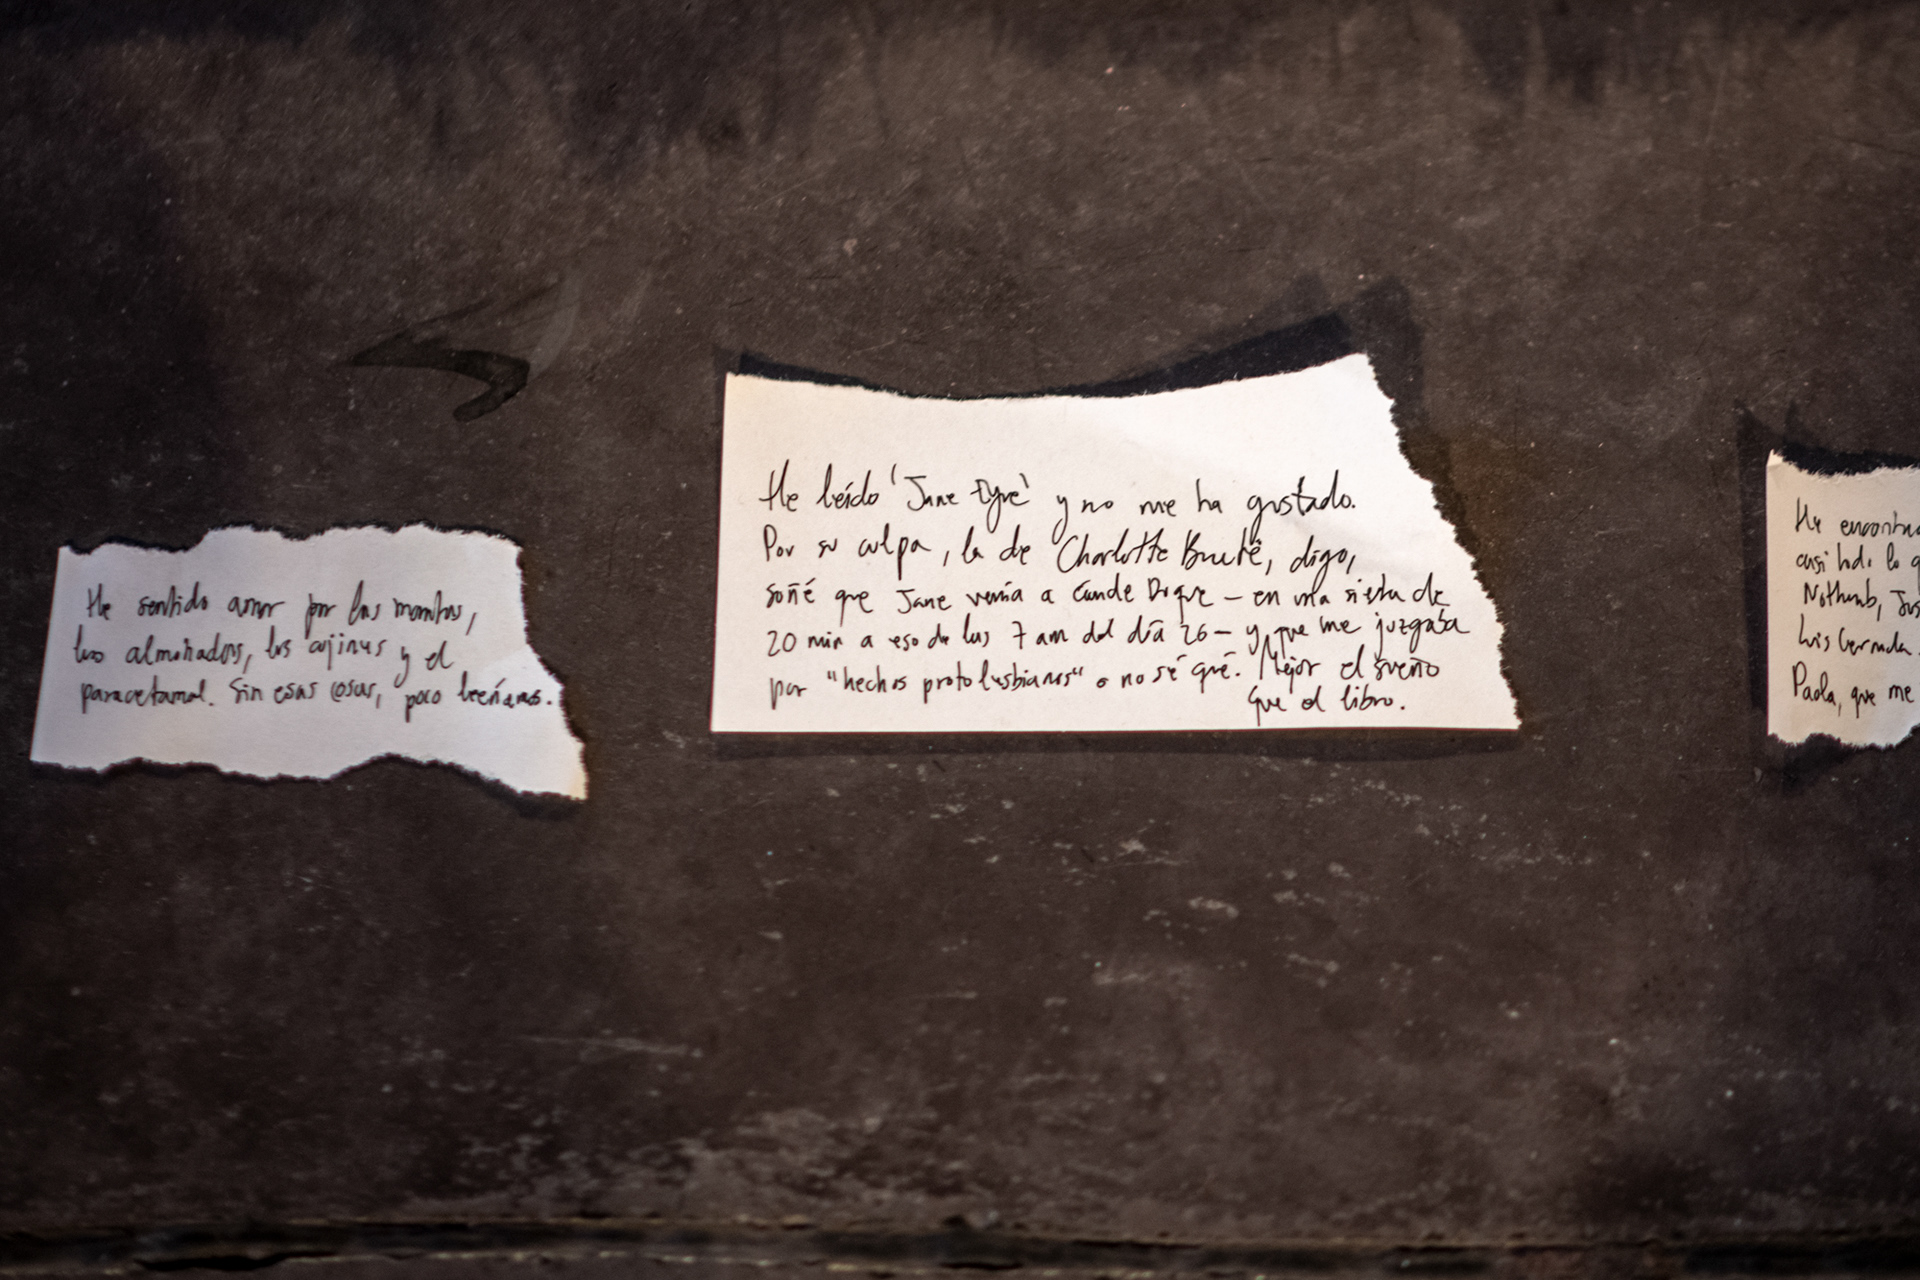 He sentido amor por las mantas,
las almohadas, los cojines y el
paracetamol. Sin esas cosas, poco leeríamos.
He leído 'Jane Eyre' y no me ha gustado.
Por su culpa, la de Charlotte Brontë, digo,
soñé que Jane venía a Conde Duque – en una siesta de
20 min a eso de las 7 am del día 26 – y que me juzgaba
por "hechos protolesbianos" o no sé qué. Mejor el sueño
que el libro.
He encontra
casi todo lo q
Nothomb, Jus
Luis Cernuda.
Paola, que me